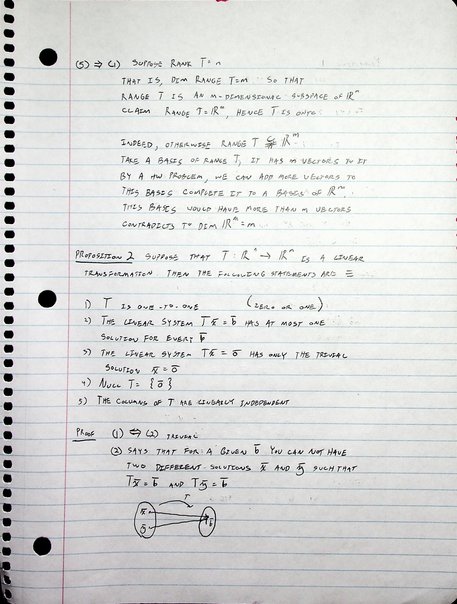 (5) ⇒ (1) SUPPOSE RANK T = n
THAT IS, DIM RANGE T = m SO THAT
RANGE T IS AN m-DIMENSIONAL SUBSPACE OF ℝⁿ
CLAIM RANGE T = ℝᵐ, HENCE T IS ONTO
INDEED, OTHERWISE RANGE T ⊊ ℝᵐ
TAKE A BASIS OF RANGE T, IT HAS m VECTORS TO IT
BY A HW PROBLEM, WE CAN ADD MORE VECTORS TO
THIS BASIS COMPLETE IT TO A BASES OF ℝᵐ
THIS BASIS WOULD HAVE MORE THAN m VECTORS
CONTRADICTS TO DIM ℝᵐ = m
PROPOSITION 2 SUPPOSE THAT T : ℝⁿ → ℝᵐ IS A LINEAR
TRANSFORMATION. THEN THE FOLLOWING STATEMENTS ARE ≡
1) T IS ONE-TO-ONE (ZERO OR ONE)
2) THE LINEAR SYSTEM Tx̄ = b̄ HAS AT MOST ONE
SOLUTION FOR EVERY b̄
3) THE LINEAR SYSTEM Tx̄ = ō HAS ONLY THE TRIVIAL
SOLUTION x̄ = ō
4) NULL T = {ō}
5) THE COLUMNS OF T ARE LINEARLY INDEPENDENT
PROOF (1) ⇔ (2) TRIVIAL
(2) SAYS THAT FOR A GIVEN b̄ YOU CAN NOT HAVE
TWO DIFFERENT SOLUTIONS x̄ AND ȳ SUCH THAT
Tx̄ = b̄ AND Tȳ = b̄
T
x̄
b̄
ȳ